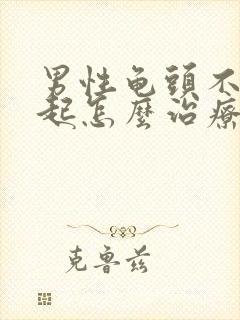 男性龟頭不
起怎麼治療
克鲁兹